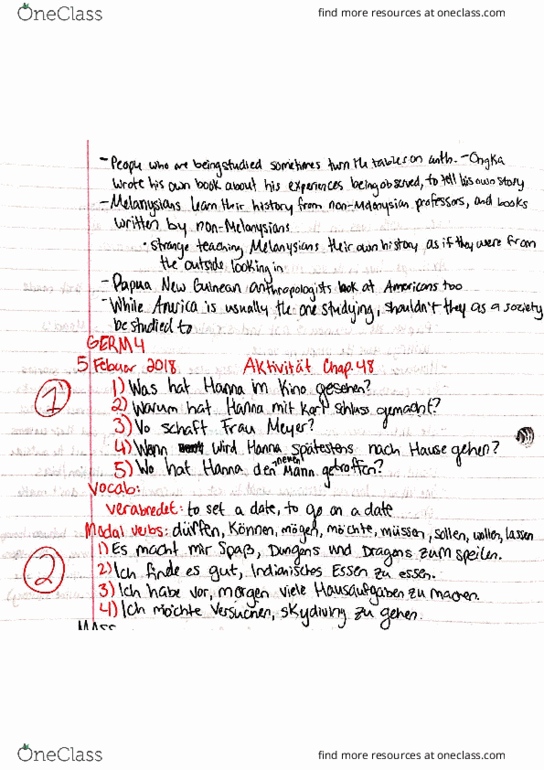 OneClass
find more resources at oneclass.com
- People who are being studied sometimes turn the tables on anth. - Ongka
wrote his own book about his experiences being observed, to tell his own story
- Melanysians learn their history from non-Melanysian professors, and books
written by non-Melanysians
• strange teaching Melanysians their own history as if they were from
the outside looking in
- Papua New Guinean anthropologists look at Americans too
- While America is usually the one studying, shouldn't they as a society
be studied to
GERM 4
5 Febuar 2018. Aktivität Chap. 48
1
1) Was hat Hanna im Kino gesehen?
2) Warum hat Hanna mit Karl schluss gemacht?
3) Wo schaft Frau Meyer?
4) Wann wird Hanna spätestens nach Hause gehen?
5) Wo hat Hanna den neuen Mann getroffen?
Vocab:
verabredet: to set a date, to go on a date
Modal verbs: dürffen, können, mögen, möchte, müssen, sollen, wollen, lassen
2
1) Es macht mir Spaß, Dungens und Dragens zum speilen.
2) Ich finde es gut, Indianisches Essen zu essen.
3) Ich habe vor, morgen viele Hausaufgaben zu machen.
4) Ich möchte versuchen, skydiving zu gehen.
OneClass
find more resources at oneclass.com